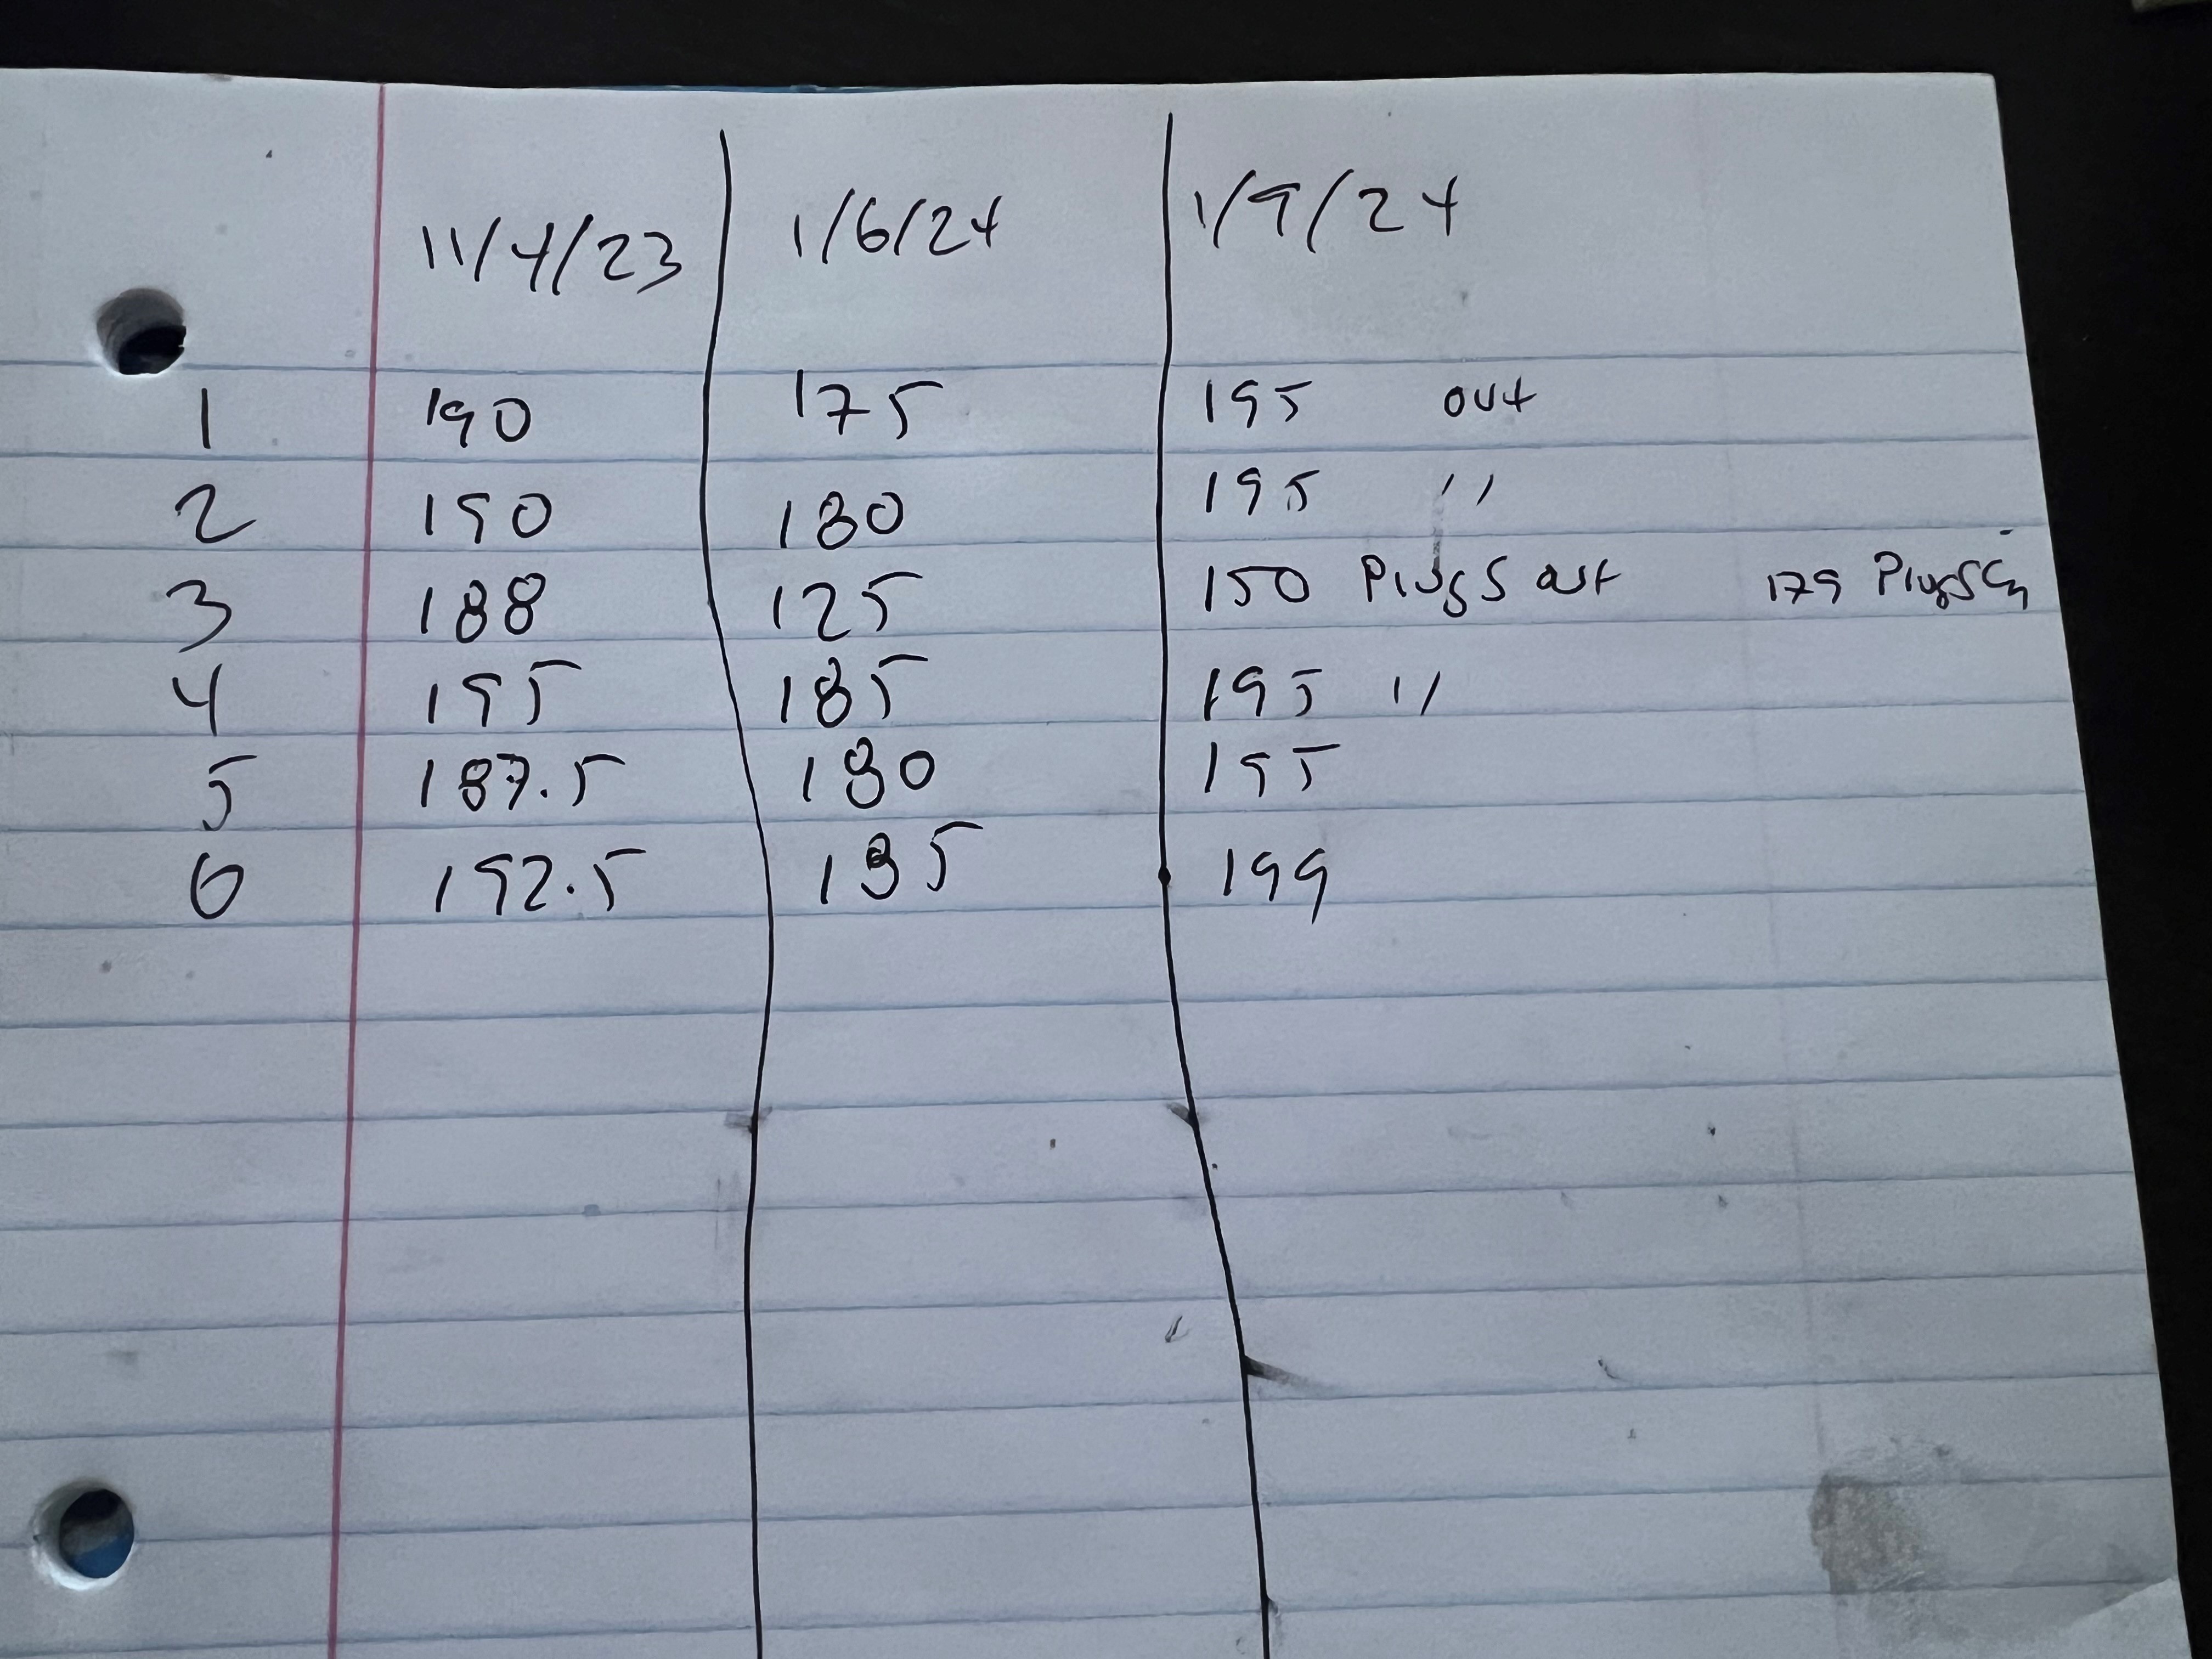 11/4/23 1/6/24 1/9/24
1 190 175 195 out
2 190 180 195 "
3 188 125 150 Plugs out 179 Plugs in
4 195 185 195 "
5 187.5 180 195
6 192.5 185 199